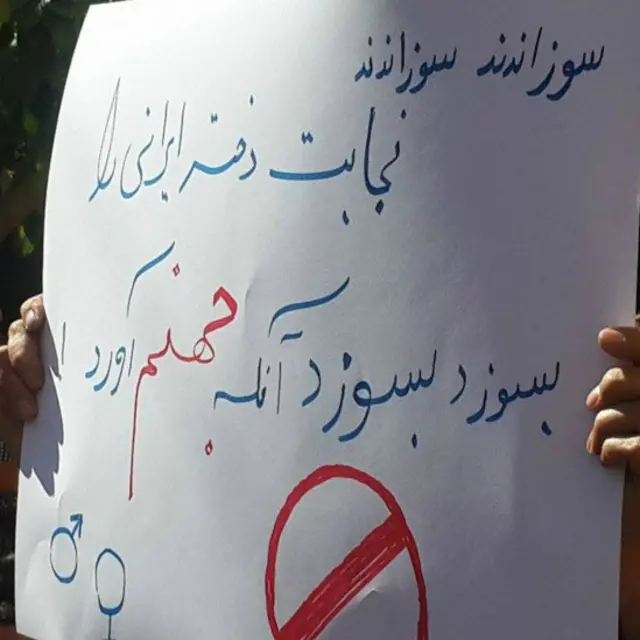 سوزاندند سوزاندند
نجابت دختر ایرانی را
بسوزد بسوزد آنکه جهنم آورد